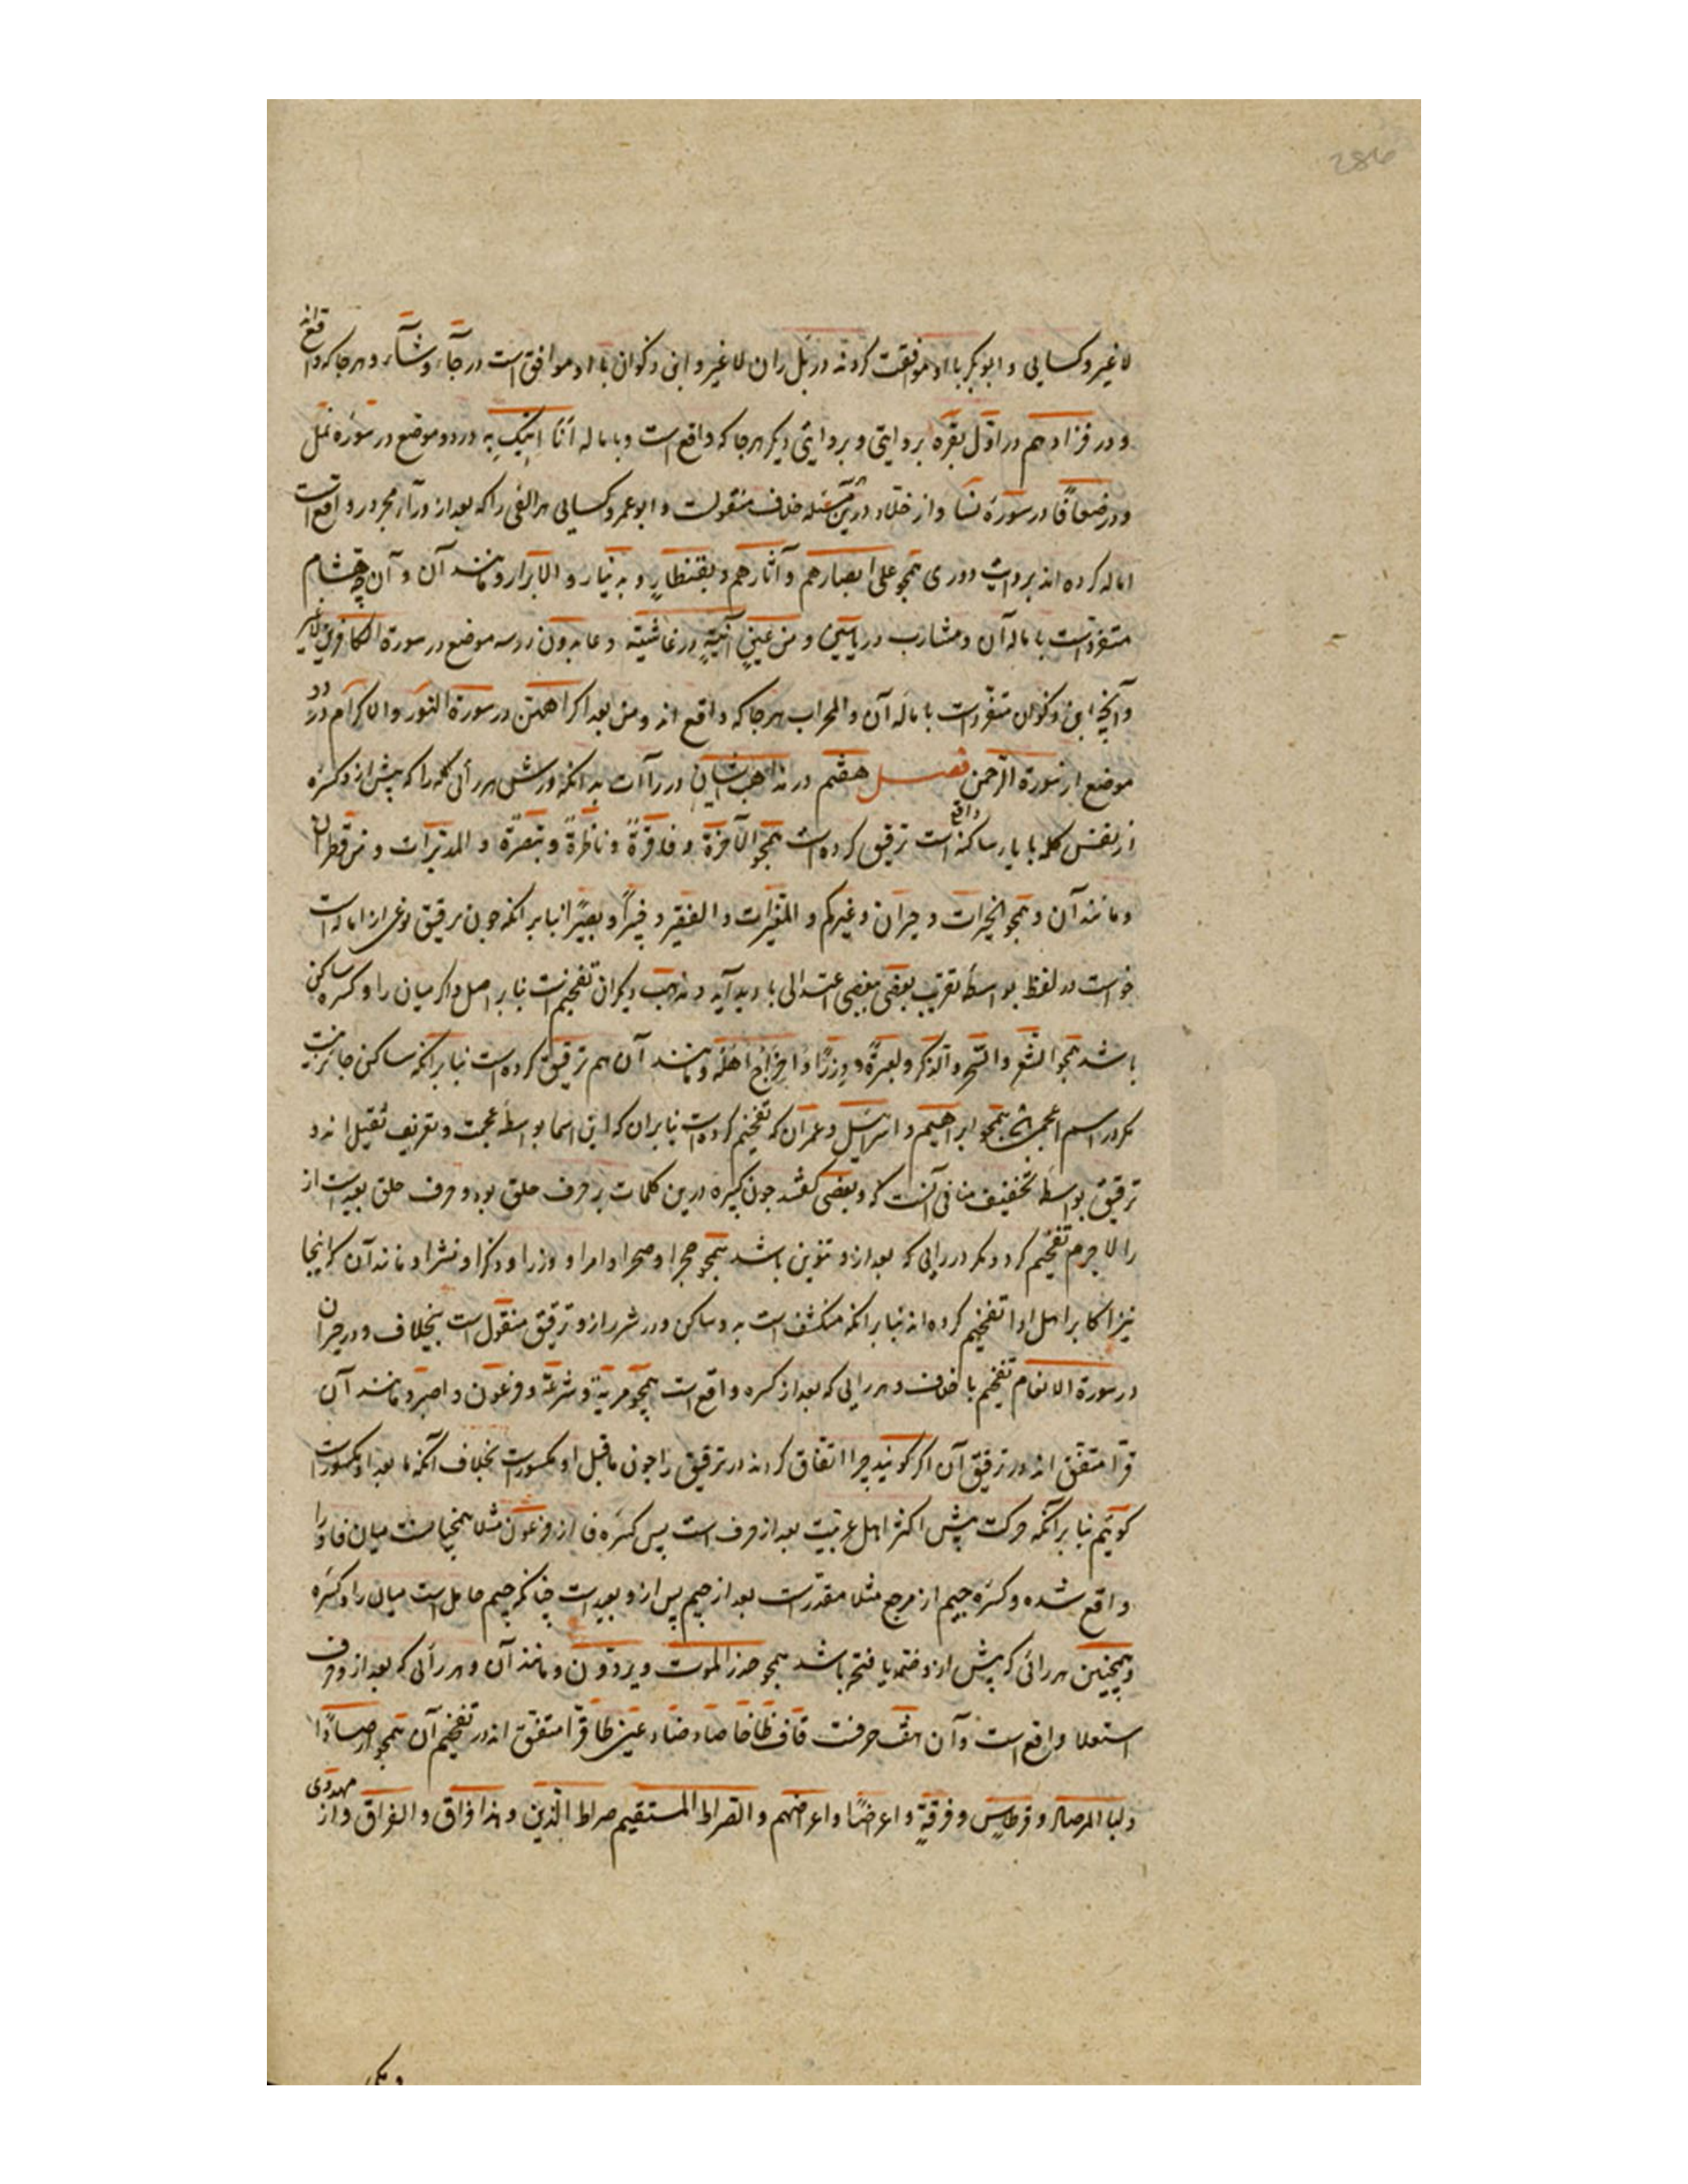 286
لا غیر و کسایی و ابوبکر با او موافقت کردند در بَل ران لا غیر و ابن ذکوان با او موافق است در جَآءَ و شَآءَ و هر جا که واقع اند
و در فزادهم در اوّل بقره بروایتی و بروایتی دیگر هر جا که واقع است و باماله اَنَا اتیک به در دو موضع در سوره نمل
و در ضعافًا در سورهٔ نسا و از خلّاد درین مسئله خلاف منقولست و ابوعمرو کسایی هر الفی را که بعد از و رآء مجرور واقع است
اماله کرده اند بروایت دوری همچو علی ابصارهم و آثارهم و بقنطارٍ و بدینار و الابرار و مانند آن و آنچه هشام
متفردست باماله آن و مشارب در یاسین و من عینٍ آنیةٍ در غاشیه و عابدون در سه موضع در سورة الکافرین لا غیر
و آنچه ابن ذکوان متفردست باماله آن و المحراب هر جا که واقع اند و من بعد اکراههن در سورة النور و الاکرام در دو
موضع از سورة الرحمن فصل هفتم در مذاهب ایشان در راآت بدانکه ورش هر رأیی را که پیش از و کسره
از نفس کلمه یا یاء ساکنه واقع است ترقیق کرده است همچو الآخرة و فاقرةٌ و ناظرةٌ و تبصرةً و المدبّرات و من قطران
و مانند آن و همچو الخیرات و حیران و غیرکم و المغیرات و الفقیر و خبیرًا و بصیرًا بنا بر انکه چون ترقیق نوعی از اماله است
خواست در لفظ بواسطه تقریب بعضی ببعضی اعتدالی با دید آید و مذهب دیگران تفخیم است بنا بر اصل و اگر میان را و کسره ساکن
باشد همچو الشعر و السحر و الذکر و لعبرةً و وزرًا و اخراج اهله و مانند آن هم ترقیق کرده است بنا بر انکه ساکن حاجز نیست
مگر در اسم اعجمی همچو ابراهیم و اسرائیل و عمران که تفخیم کرده است بنا بران که این اسما بواسطه عجمت و تعریف ثقیل اند و
ترقیق بواسطه تخفیف منافی آنست و بعضی گفتند چون کسره درین کلمات بر حرف حلق بود و حرف حلق بعیدست از
را لا جرم تفخیم کرد و مگر در رایی که بعد از و تنوین باشد همچو حجرا و صحرا و امرا و وزرا و ذکرا و نشرا و مانند آن که اینجا
نیز اکابر اهل ادا تفخیم کرده اند بنا بر انکه منکشف است به دو ساکن و در شرر از و ترقیق منقول است بخلاف و در حیران
در سورة الانعام تفخیم با خلاف و هر رایی که بعد از کسره واقع است همچو مریة و شرعة و فرعون و اصبر و مانند آن
قرّا متفق اند در ترقیق آن اگر گویند چرا اتفاق کردند در ترقیق را چون ماقبل او مکسورست بخلاف آنکه ما بعد او مکسورست
گوییم بنا بر آنکه حرکت پیش اکثر اهل عربیت بعد از حرف است پس کسره فا از فرعون مثلا همچنانست میان فا و را
واقع شده و کسره جیم از مرجع مثلا مقدرست بعد از جیم پس از و بعیدست چنانکه جیم حایل است میان را و کسره
و همچنین هر رائی که پیش از و ضمه یا فتحه باشد همچو حذر الموت و یردّون و مانند آن و هر رأیی که بعد از و حرف
استعلا واقع است و آن هفت حرفست قاف ظا خا صاد ضاد غین طا قرّا متفق اند در تفخیم آن همچو ارصادًا
و لبا المرصاد و قرطاس و فرقةٍ و اعراضًا و اعراضهم و الصراط المستقیم صراط الّذین و هذا فراق و الفراق و از مهدوی